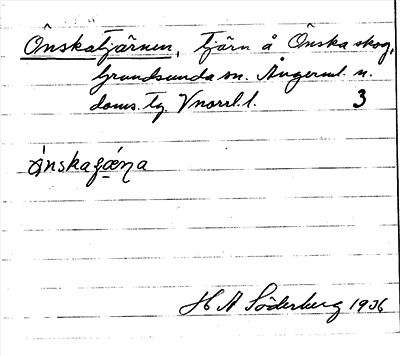 Önskatjärnen, Tjärn å Önska skog,
Grundsunda sn. Ångerml. n.
doms. tg. Vnorrl. l. 3
ȯ́nskaʃæ̀ɳa
H A Söderberg 1936